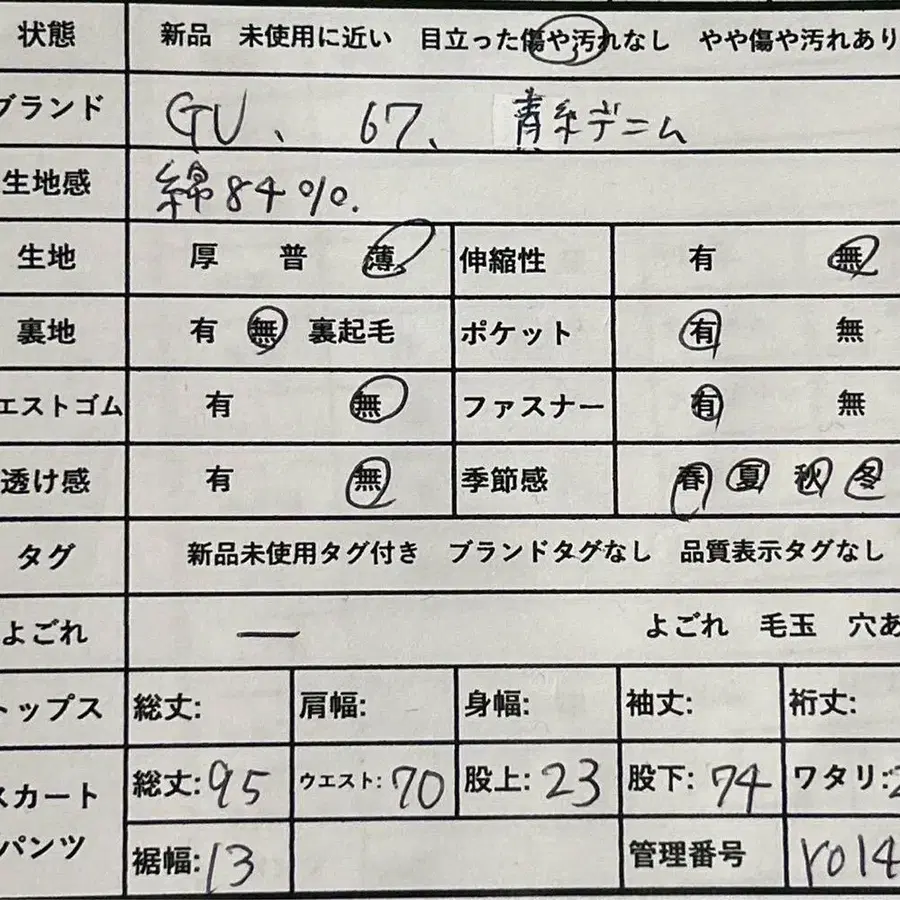 状態 新品 未使用に近い 目立った傷や汚れなし やや傷や汚れあり
ブランド GU、 67、 青系デニム
生地感 綿84%.
生地 厚 普 薄 伸縮性 有 無
裏地 有 無 裏起毛 ポケット 有 無
エストゴム 有 無 ファスナー 有 無
透け感 有 無 季節感 春 夏 秋 冬
タグ 新品未使用タグ付き ブランドタグなし 品質表示タグなし
よごれ — よごれ 毛玉 穴あ
トップス 総丈: 肩幅: 身幅: 袖丈: 裄丈:
スカート 総丈:95 ウエスト:70 股上:23 股下:74 ワタリ:
パンツ 裾幅:13 管理番号 r014